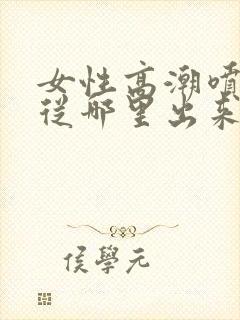 女性高潮噴
從哪里出来
侯學元